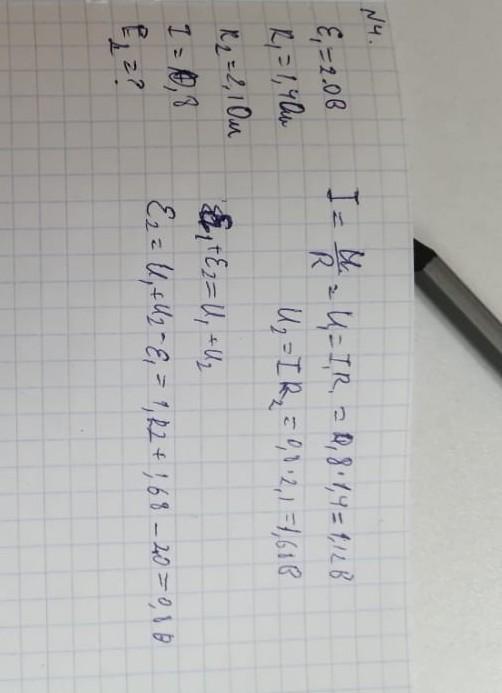 N4.
ℰ₁ = 2.0В
R₁ = 1,4Ом
R₂ = 2,1Ом
I = 0,8
ℰ₂ = ?
I = U/R = U₁ = I₁R₁ = 0,8·1,4 = 1,12В
U₂ = IR₂ = 0,8·2,1 = 1,68В
ℰ₁ + ℰ₂ = U₁ + U₂
ℰ₂ = U₁ + U₂ - ℰ₁ = 1,12 + 1,68 - 2,0 = 0,8В